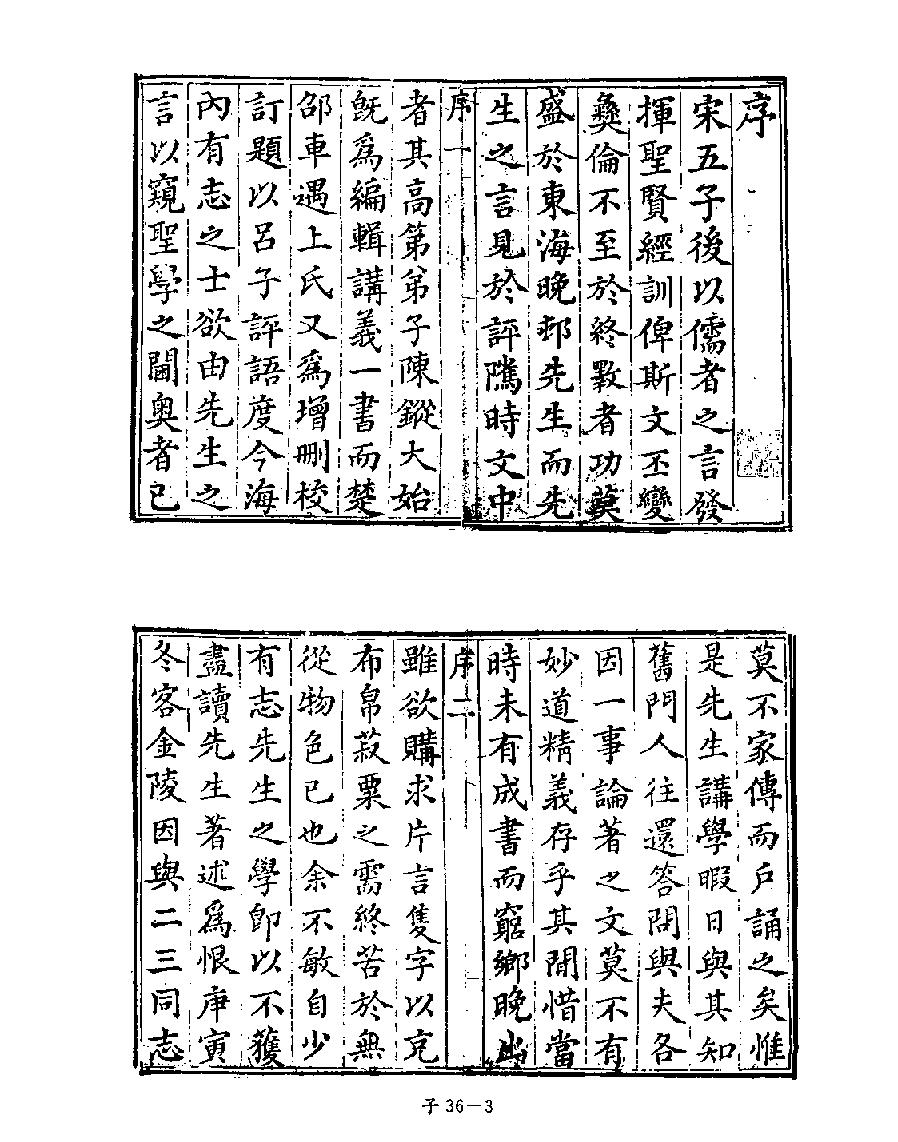 序
宋五子後以儒者之言發
揮聖賢經訓俾斯文丕變
彝倫不至於終斁者功莫
盛於東海晚邨先生而先
生之言見於評隲時文中
序一
者其高第弟子陳鏦大始
旣爲編輯講義一書而楚
邵車遇上氏又爲增刪校
訂題以呂子評語度今海
內有志之士欲由先生之
言以窺聖學之閫奧者已
莫不家傳而戶誦之矣惟
是先生講學暇日與其知
舊門人往還答問與夫各
因一事論著之文莫不有
妙道精義存乎其間惜當
時未有成書而窮鄉晚出
序二
雖欲購求片言隻字以充
布帛菽粟之需終苦於無
從物色已也余不敏自少
有志先生之學卽以不獲
盡讀先生著述爲恨庚寅
冬客金陵因與二三同志
子 36—3